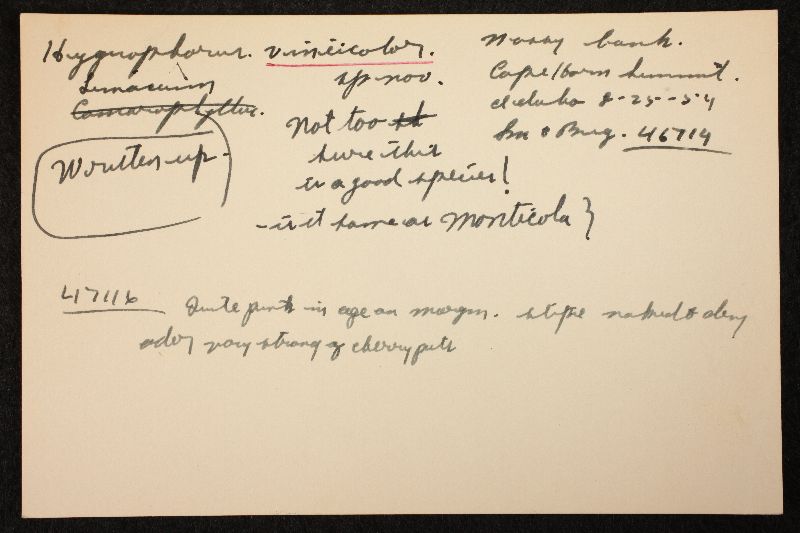 Hygrophorus. vinicolor.
sp nov.
Limacium
Camarophyllus.
Written up.
Not too
sure this
is a good species!
- is it same as monticola }
Mossy bank.
Cape Horn Summit.
Idaho 8-25-54
Sm & Brig. 46714
47116 Quite pink in age on margin. stipe naked & dry
odor very strong of cherry pits